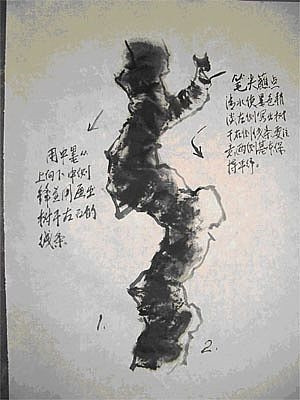 用中墨从
上向下中侧
锋互用画出
树干左右的
线条.
1.
笔尖蘸点
清水使墨色稍
淡在侧写出树
干右侧线条.要注
意两侧基本保
持平行.
2.